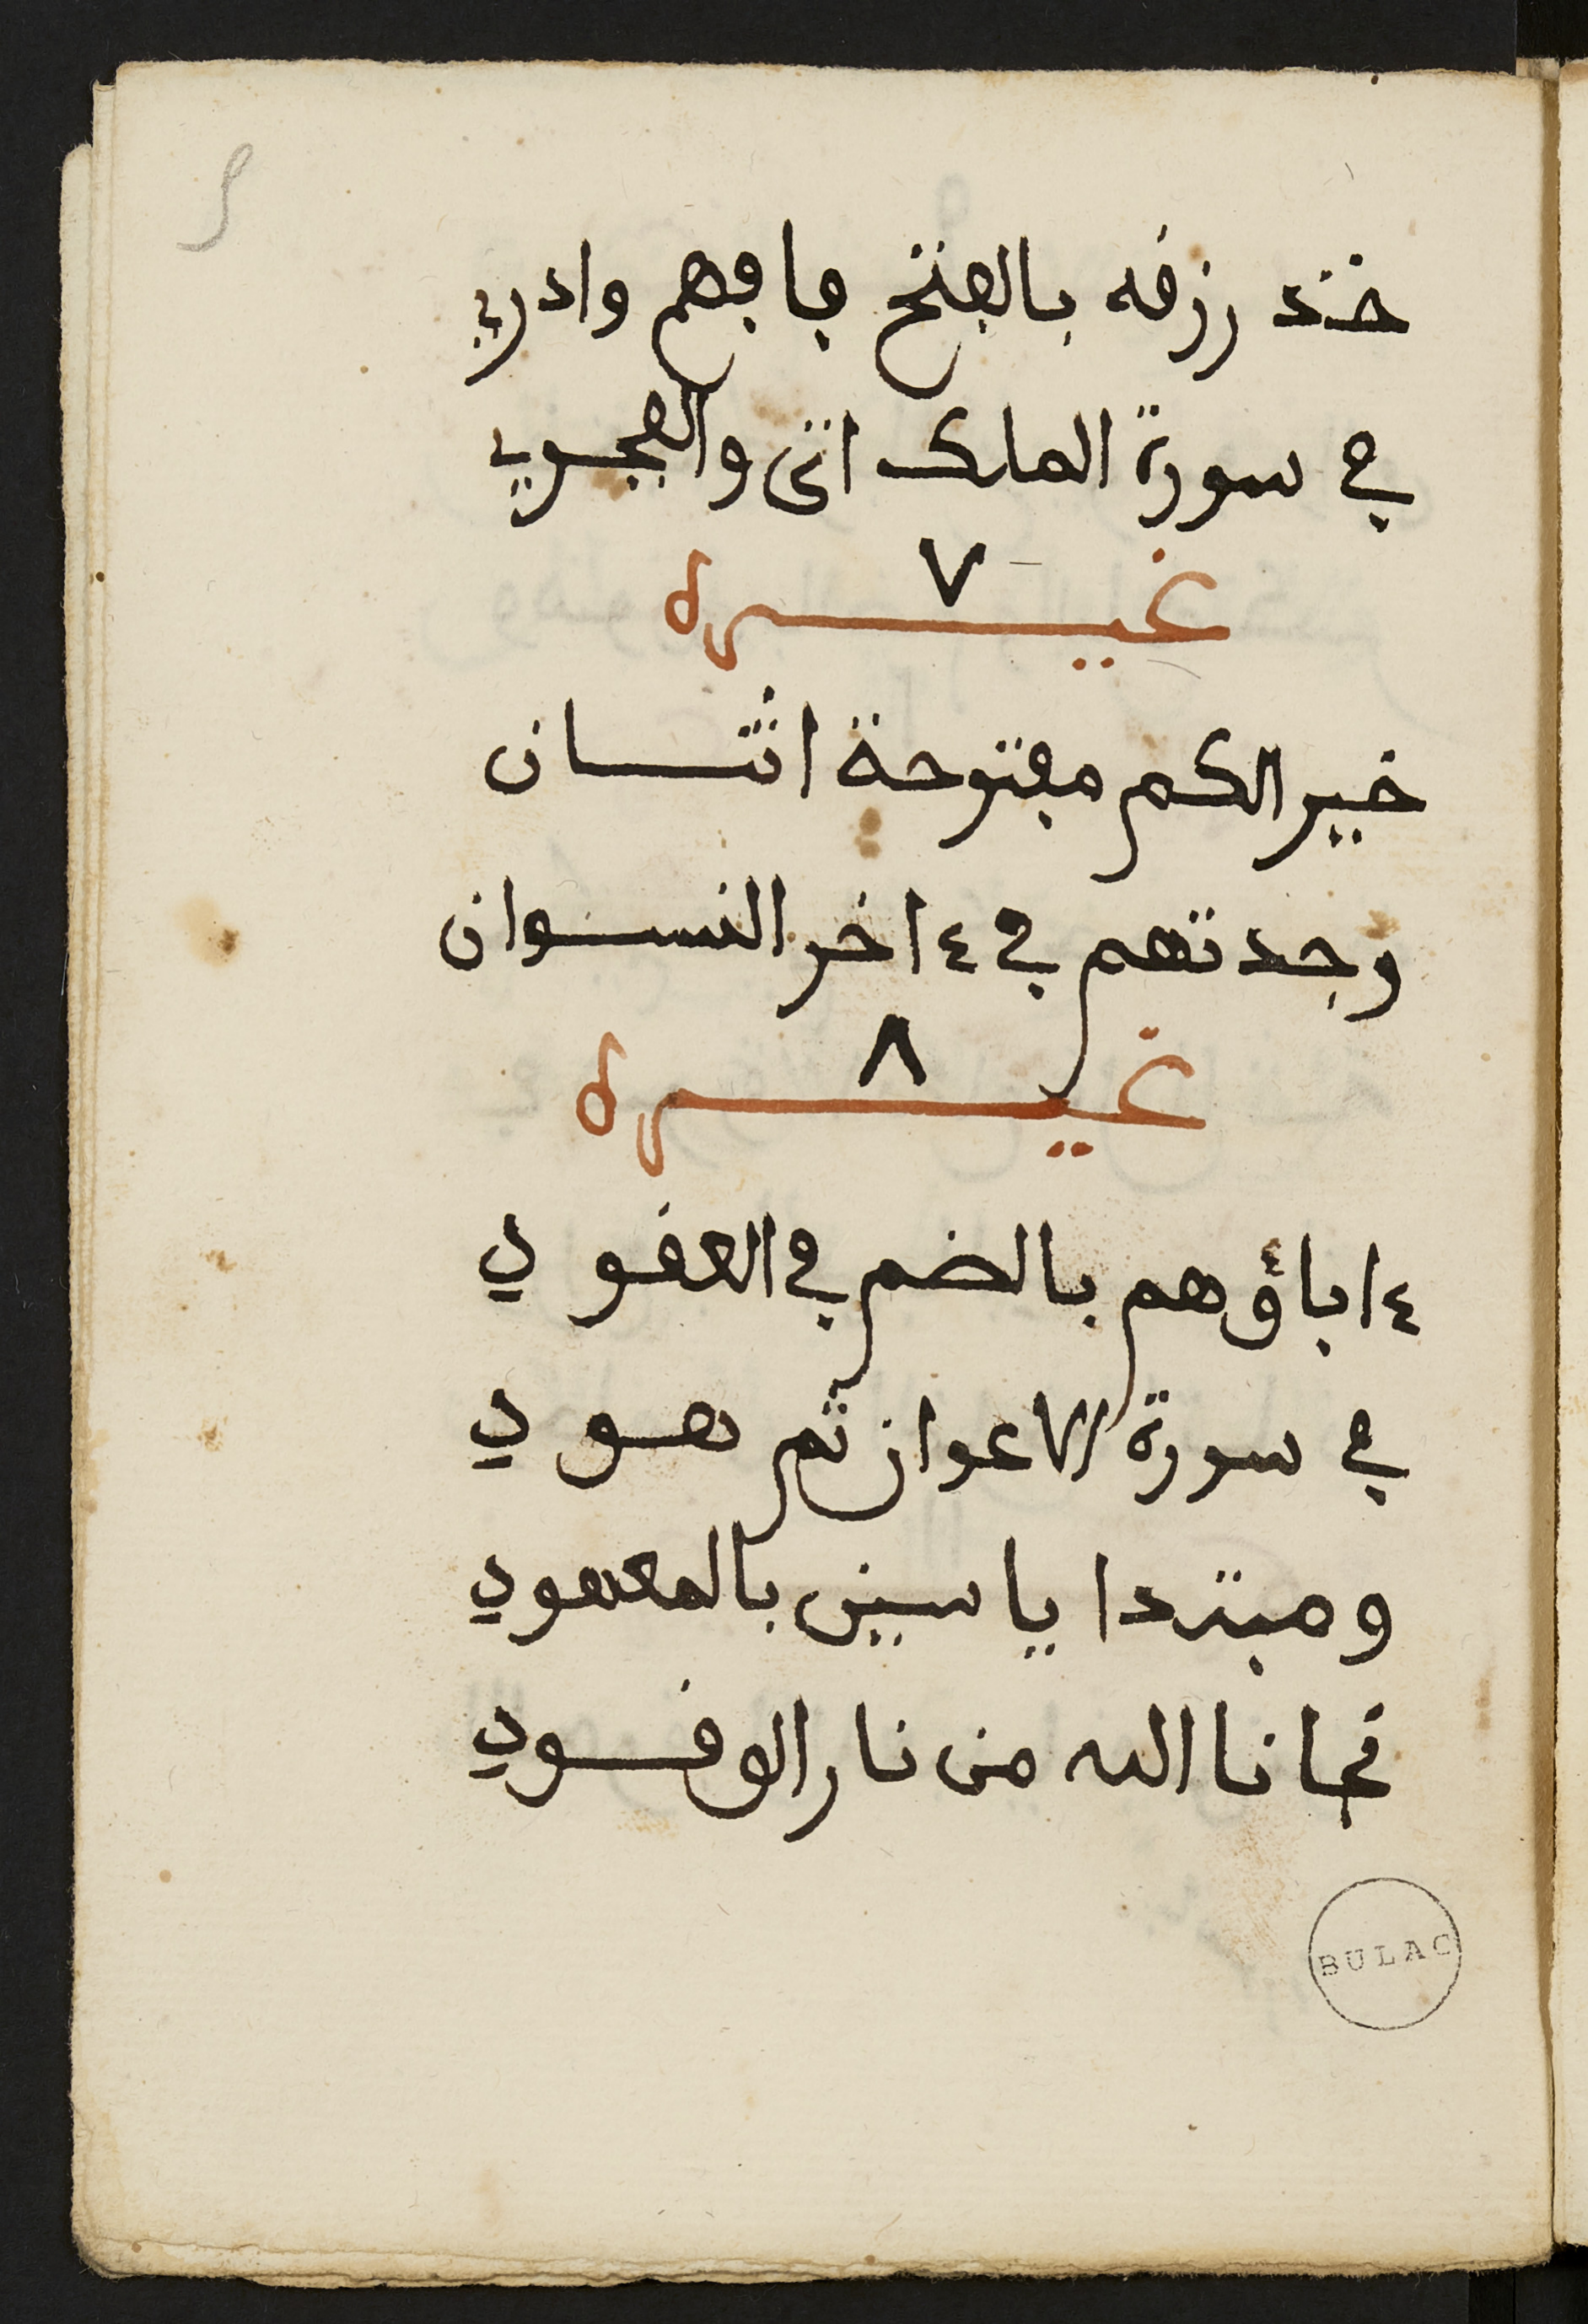 خند رزفه بالفتح فافهم وادري
في سورة الملك اتى والفجري
٧
غيره
خيرالكم مفتوحة اثنان
وجدتهم في ءاخر النسوان
٨
غيره
ءاباؤهم بالضم في العقودي
في سورة الاعوان ثم هودي
ومبتدا ياسين بالمعهودي
نجانا الله من نار الوقودي
BULAC